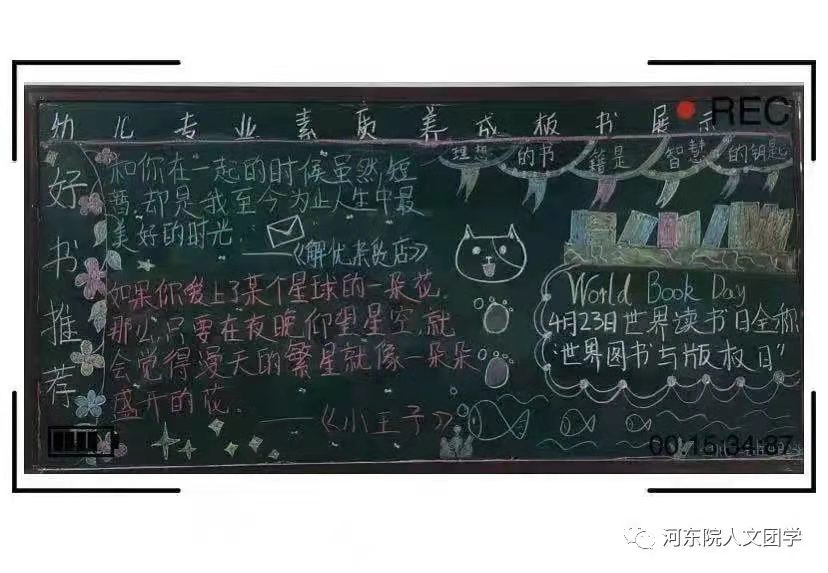 幼儿专业素质养成板书展示
REC
好书推荐
和你在一起的时候虽然短
暂,却是我至今为止人生中最
美好的时光.
——《解忧杂货店》
如果你爱上了某个星球的一朵花.
那么只要在夜晚仰望星空,就
会觉得漫天的繁星就像一朵朵
盛开的花.
——《小王子》
理想的书籍是智慧的钥匙
World Book Day
4月23日世界读书日全称
“世界图书与版权日”
00:15:34:87
河东院人文团学